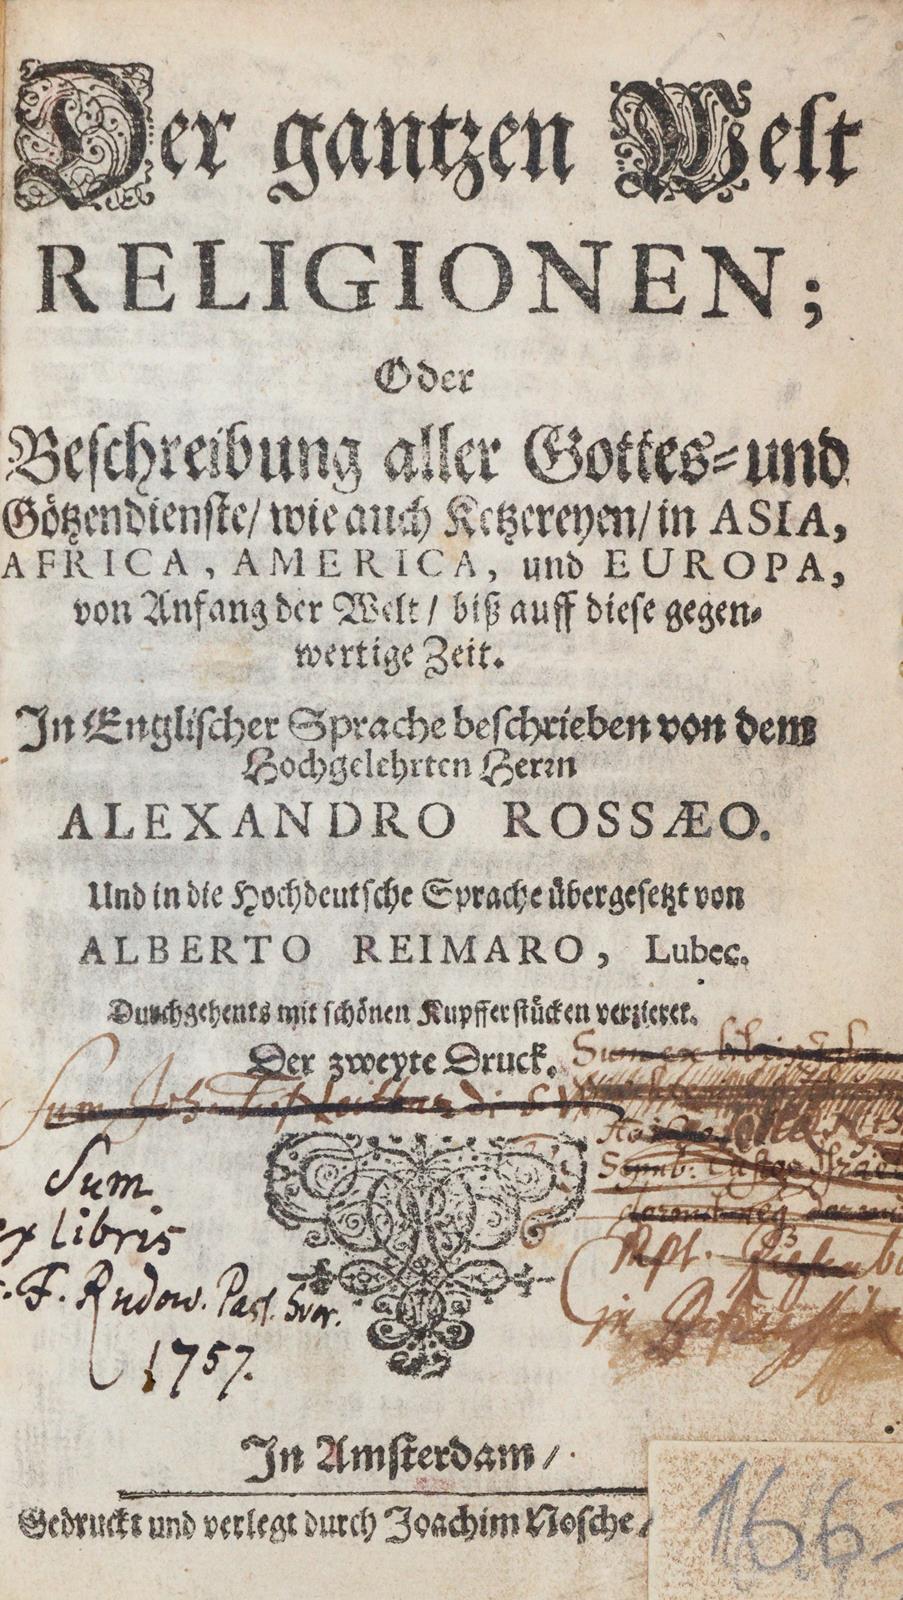 Der gantzen Welt
RELIGIONEN;
Oder
Beschreibung aller Gottes-und
Götzendienste/ wie auch Ketzereyen/ in ASIA,
AFRICA, AMERICA, und EUROPA,
von Anfang der Welt/ biß auff diese gegen-
wertige Zeit.
In Englischer Sprache beschrieben von dem
Hochgelehrten Herrn
ALEXANDRO ROSSÆO.
Und in die Hochdeutsche Sprache übergesetzt von
ALBERTO REIMARO, Lubec.
Durchgehents mit schönen Kupfferstücken verzieret.
Der zweyte Druck.
Sum ex libris
Sum Joh.
Sum
ex libris
F. Rudow. Past. Svor.
1757.
Symb:
in
In Amsterdam/
Gedruckt und verlegt durch Joachim Nosche/
166